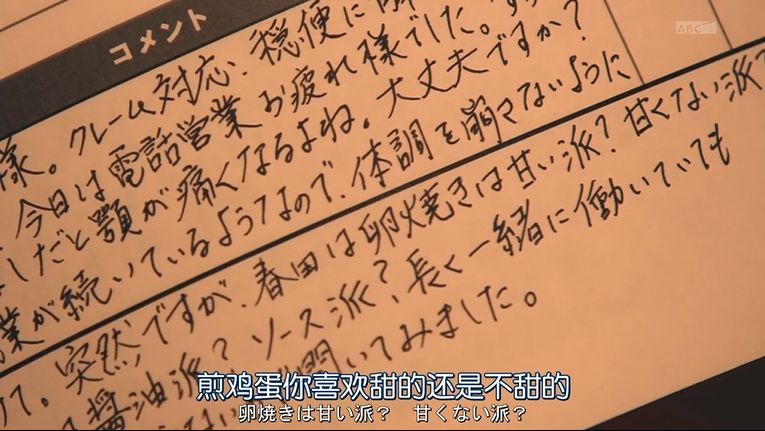 ABC
コメント
様。クレーム対応、穏便に
今日は電話営業お疲れ様でした。
しだと顎が痛くなるよね。大丈夫ですか?
業が続いているようなので、体調を崩さないように
突然ですが、春田は卵焼きは甘い派?甘くない派?
醤油派?ソース派?、長く一緒に働いていても
聞いてみました。
煎鸡蛋你喜欢甜的还是不甜的
卵焼きは甘い派? 甘くない派?